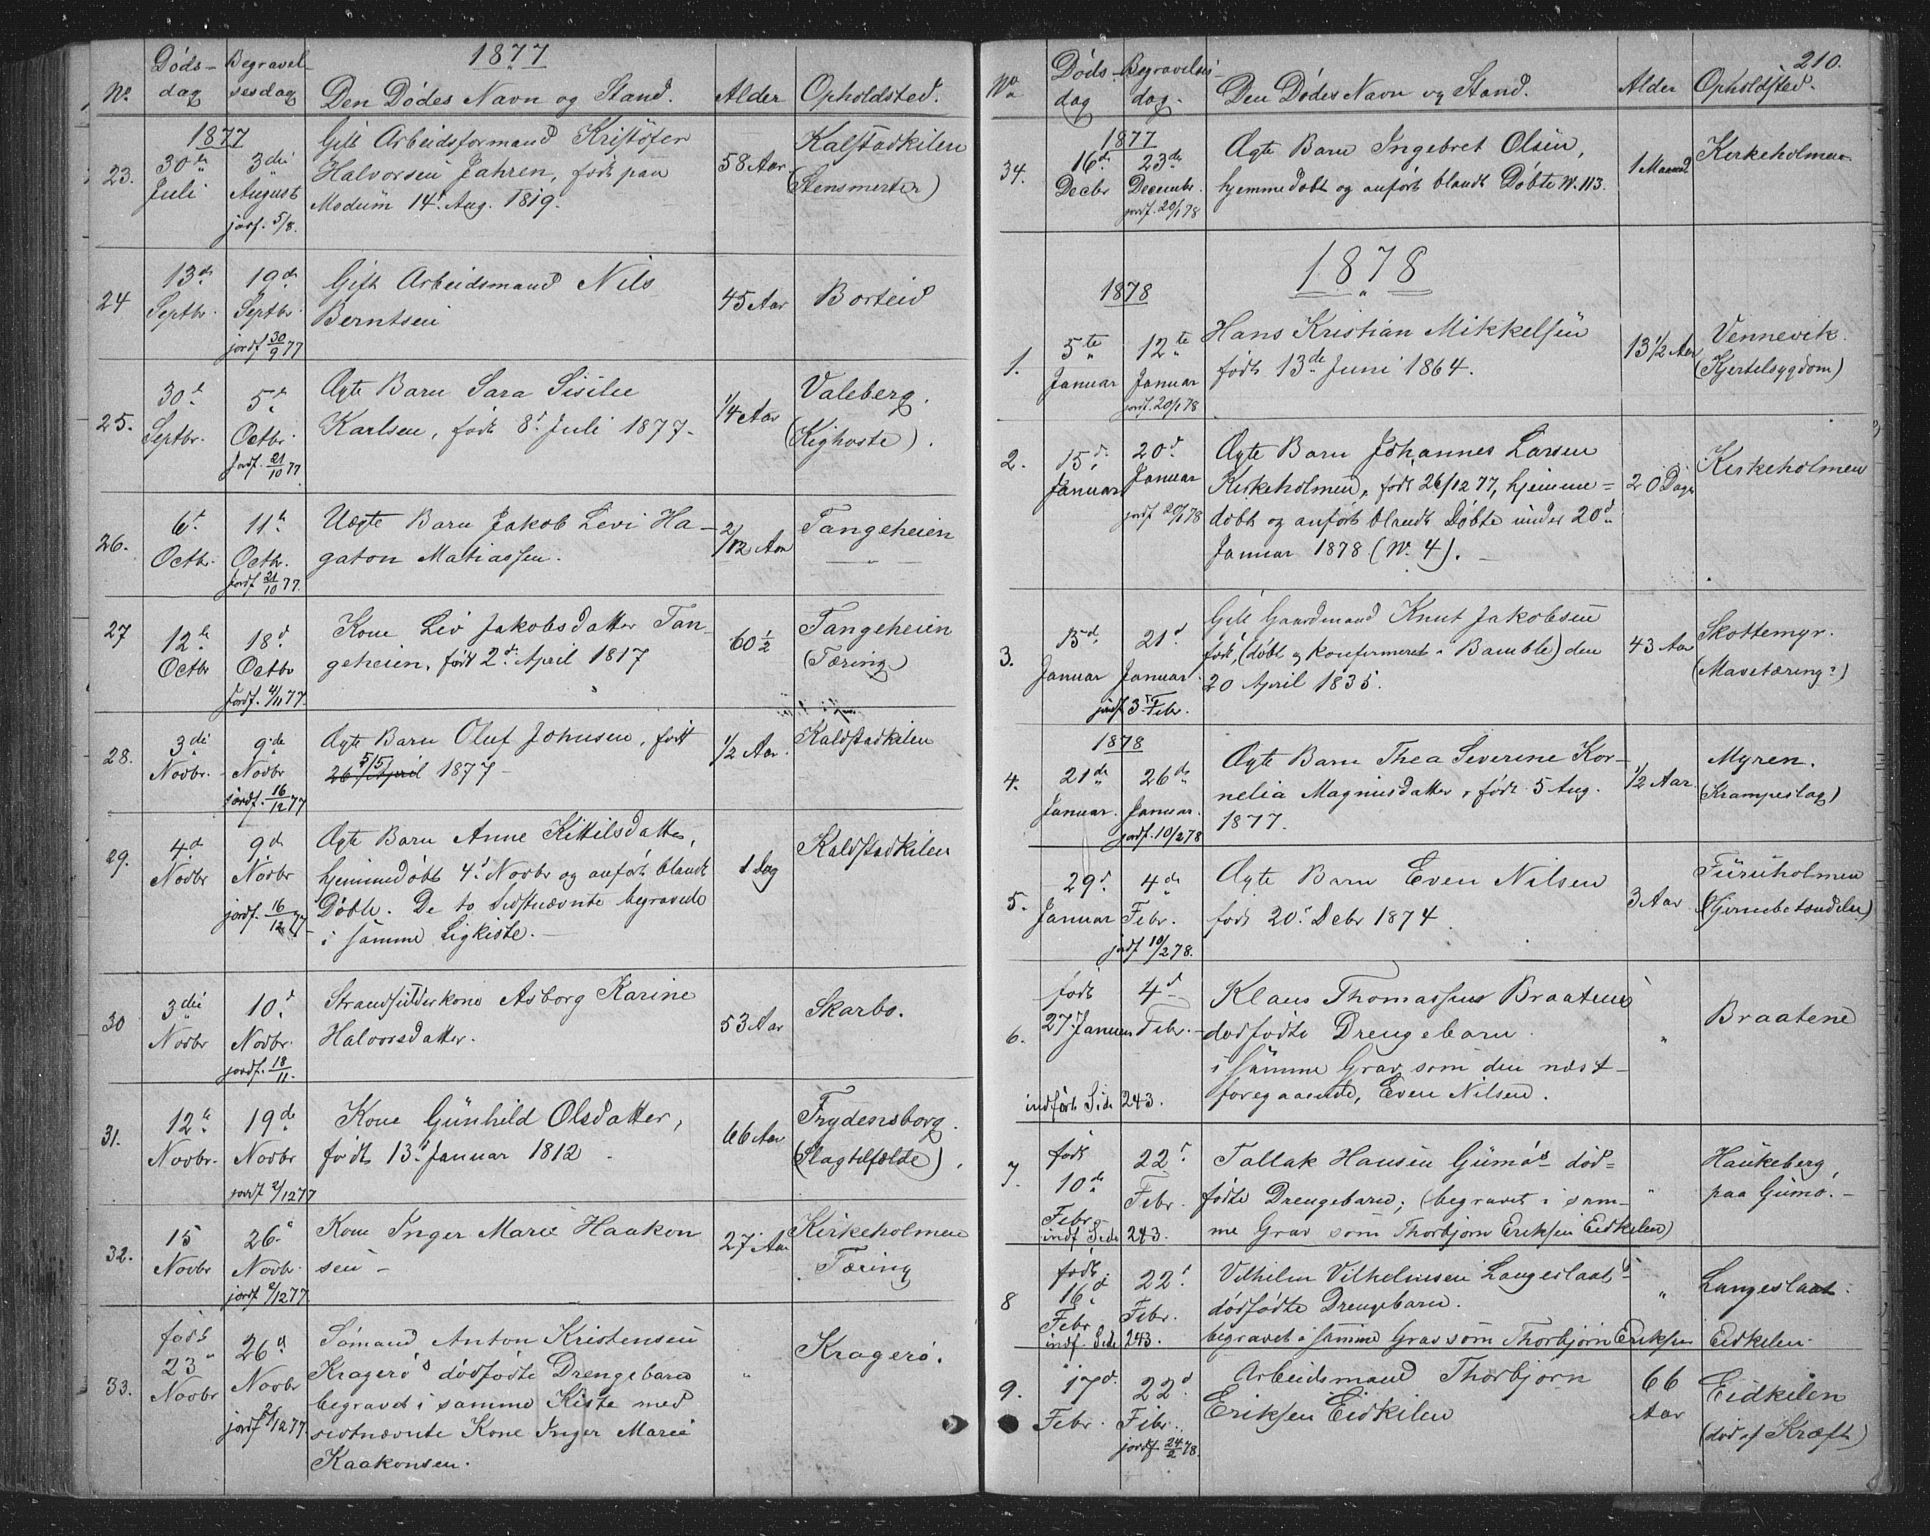 1877
No. Døds-dag Begravelsesdag Den Dødes Navn og Stand. Alder Opholdsted.
1877
23. 30te Juli 3die August jordf. 5/8.
Gift Arbeidsformand Kristofer
Halvorsen Jahren, født paa
Modum 14d Aug. 1819.
58 Aar
Kalstadkilen
24 13de Septbr. 19de Septbr. jordf 30/9 77
Gift Arbeidsmand Nils
Berntsen
45 Aar
Borteid
25. 30d Septbr. 5d Octbr. Jordf. 21/10 77.
Ægte Barn Sara Sisilie
Karlsen, født 8d Juli 1877.
1/4 Aar
Valeberg.
(Kighoste).
26. 6t Octbr. 11te Octbr. Jordf 21/10 77.
Uægte Barn Jakob Levi Ha-
gaton Matiassen.
2/12 Aar
Tangeheien
27 12te Octbr 18d Octbr Jordf. 4/11 77.
Kone Liv Jakobsdatter Tan-
geheien, født 2d April 1817
60 1/2
Tangeheien
(Tæring)
28. 3die Novbr. 9de Novbr jordf. 16/12 77
Ægte Barn Oluf Johnsen, født
5/5
26 April 1877
1/2 Aar.
Kaldstadkilen
29. 4d Novbr 9d Novbr jordf. 16/12 77.
Ægte Barn Anne Kittilsdatter,
hjemmedøbt 4d Novbr og anført blandt
Døbte. De to sidstnævnte begravede
i samme Ligkiste.
1 Dag
Kaldstadkilen
30 3die Novbr 10d Novbr. jordf. 18/11.
Strandsidderkone Asborg Karine
Halvorsdatter.
53 Aar
Skarbo.
31. 12te Novbr. 19de Novbr jordf 2/12 77
Kone Gunhild Olsdatter,
født 13d Januar 1812
66 Aar
Frydensborg.
(Slagtilfælde).
32. 15 Novbr 26d Novbr. jordf 2/12 77
Kone Inger Marie Haakon
sen
27 Aar
Kirkeholmen
Tæring
33. født 23 Novbr 26d Novbr jordf 2/12 77.
Sømand Anton Kristensen
Kragerøs dødfødte Drengebarn
begravet i samme Kiste med
sidstnævnte Kone Inger Marie
Haakonsen.
"
Kragerø.
210.
No. Døds-dag Begravelsesdag. Den Dødes Navn og Stand. Alder Opholdsted.
1877
34. 16de Decbr 23de Decembr. jordf. 20/1 78
Ægte Barn Ingebret Olsen,
hjemmedøbt og anført blandt Døbte No. 113.
1 Maaned
Kirkeholmen
1878
1878
1. 5te Januar 12te Januar jordf. 20/1 78
Hans Kristian Mikkelsen
født 13de Juni 1864.
13 1/2 Aar
Vennevik.
(Kjertelsygdom)
2. 15d Januar 20d Januar jordf 20/1 78
Ægte Barn Johannes Larsen
Kirkeholmen, født 26/12 77, hjemme=
døbt og anført blandt Døbte under 20d
Januar 1878 (No. 4).
20 Dage
Kirkeholmen
3. 15d Januar 21d Januar jordf 3d Febr.
Gift Gaardmand Knut Jakobsen
født, (døbt og konfirmeret i Bamble) den
20 April 1835.
43 Aar
Skottemyr.
(Mavetæring?)
1878
4. 21de Januar. 26de Januar. jordf. 10/2 78
Ægte Barn Thea Severine Kor-
nelia Magnusdatter, født 5 Aug.
1877.
1/2 Aar.
Myren.
(Krampeslag)
5. 29d Januar 4de Febr. jordf 10/2 78.
Ægte Barn Even Nilsen
født 20d Decbr 1874.
3 Aar
Furuholmen
(Hjernebetændelse)
6. født 27d Januar 4d Febr.
Klaus Thomassens Braatene
dødfødte Drengebarn.
i samme Grav som den næst-
foregaaende, Even Nilsen.
indført Side 243.
"
Braatene
7. født 10de Febr. 22d Febr.
Tallak Hansen Gumøs død=
fødte Drengebarn; (begravet i sam-
me Grav som Thorbjørn Eriksen Eidkilen)
indf Side 243.
"
Haukeberg,
paa Gumø.
8 født 16d Febr 22d Febr.
Vilhelm Vilhelmsen Langeslaats
dødfødte Drengebarn.
begravet i samme Grav som Thorbjørn Eriksen Eidkilen.
indf. Side 243.
"
Langeslaat.
9. 17d. Febr. 22d Febr. jordf 24/2 78.
Arbeidsmand Thorbjørn
Eriksen Eidkilen
66
Aar
Eidkilen
(død af Kræft)